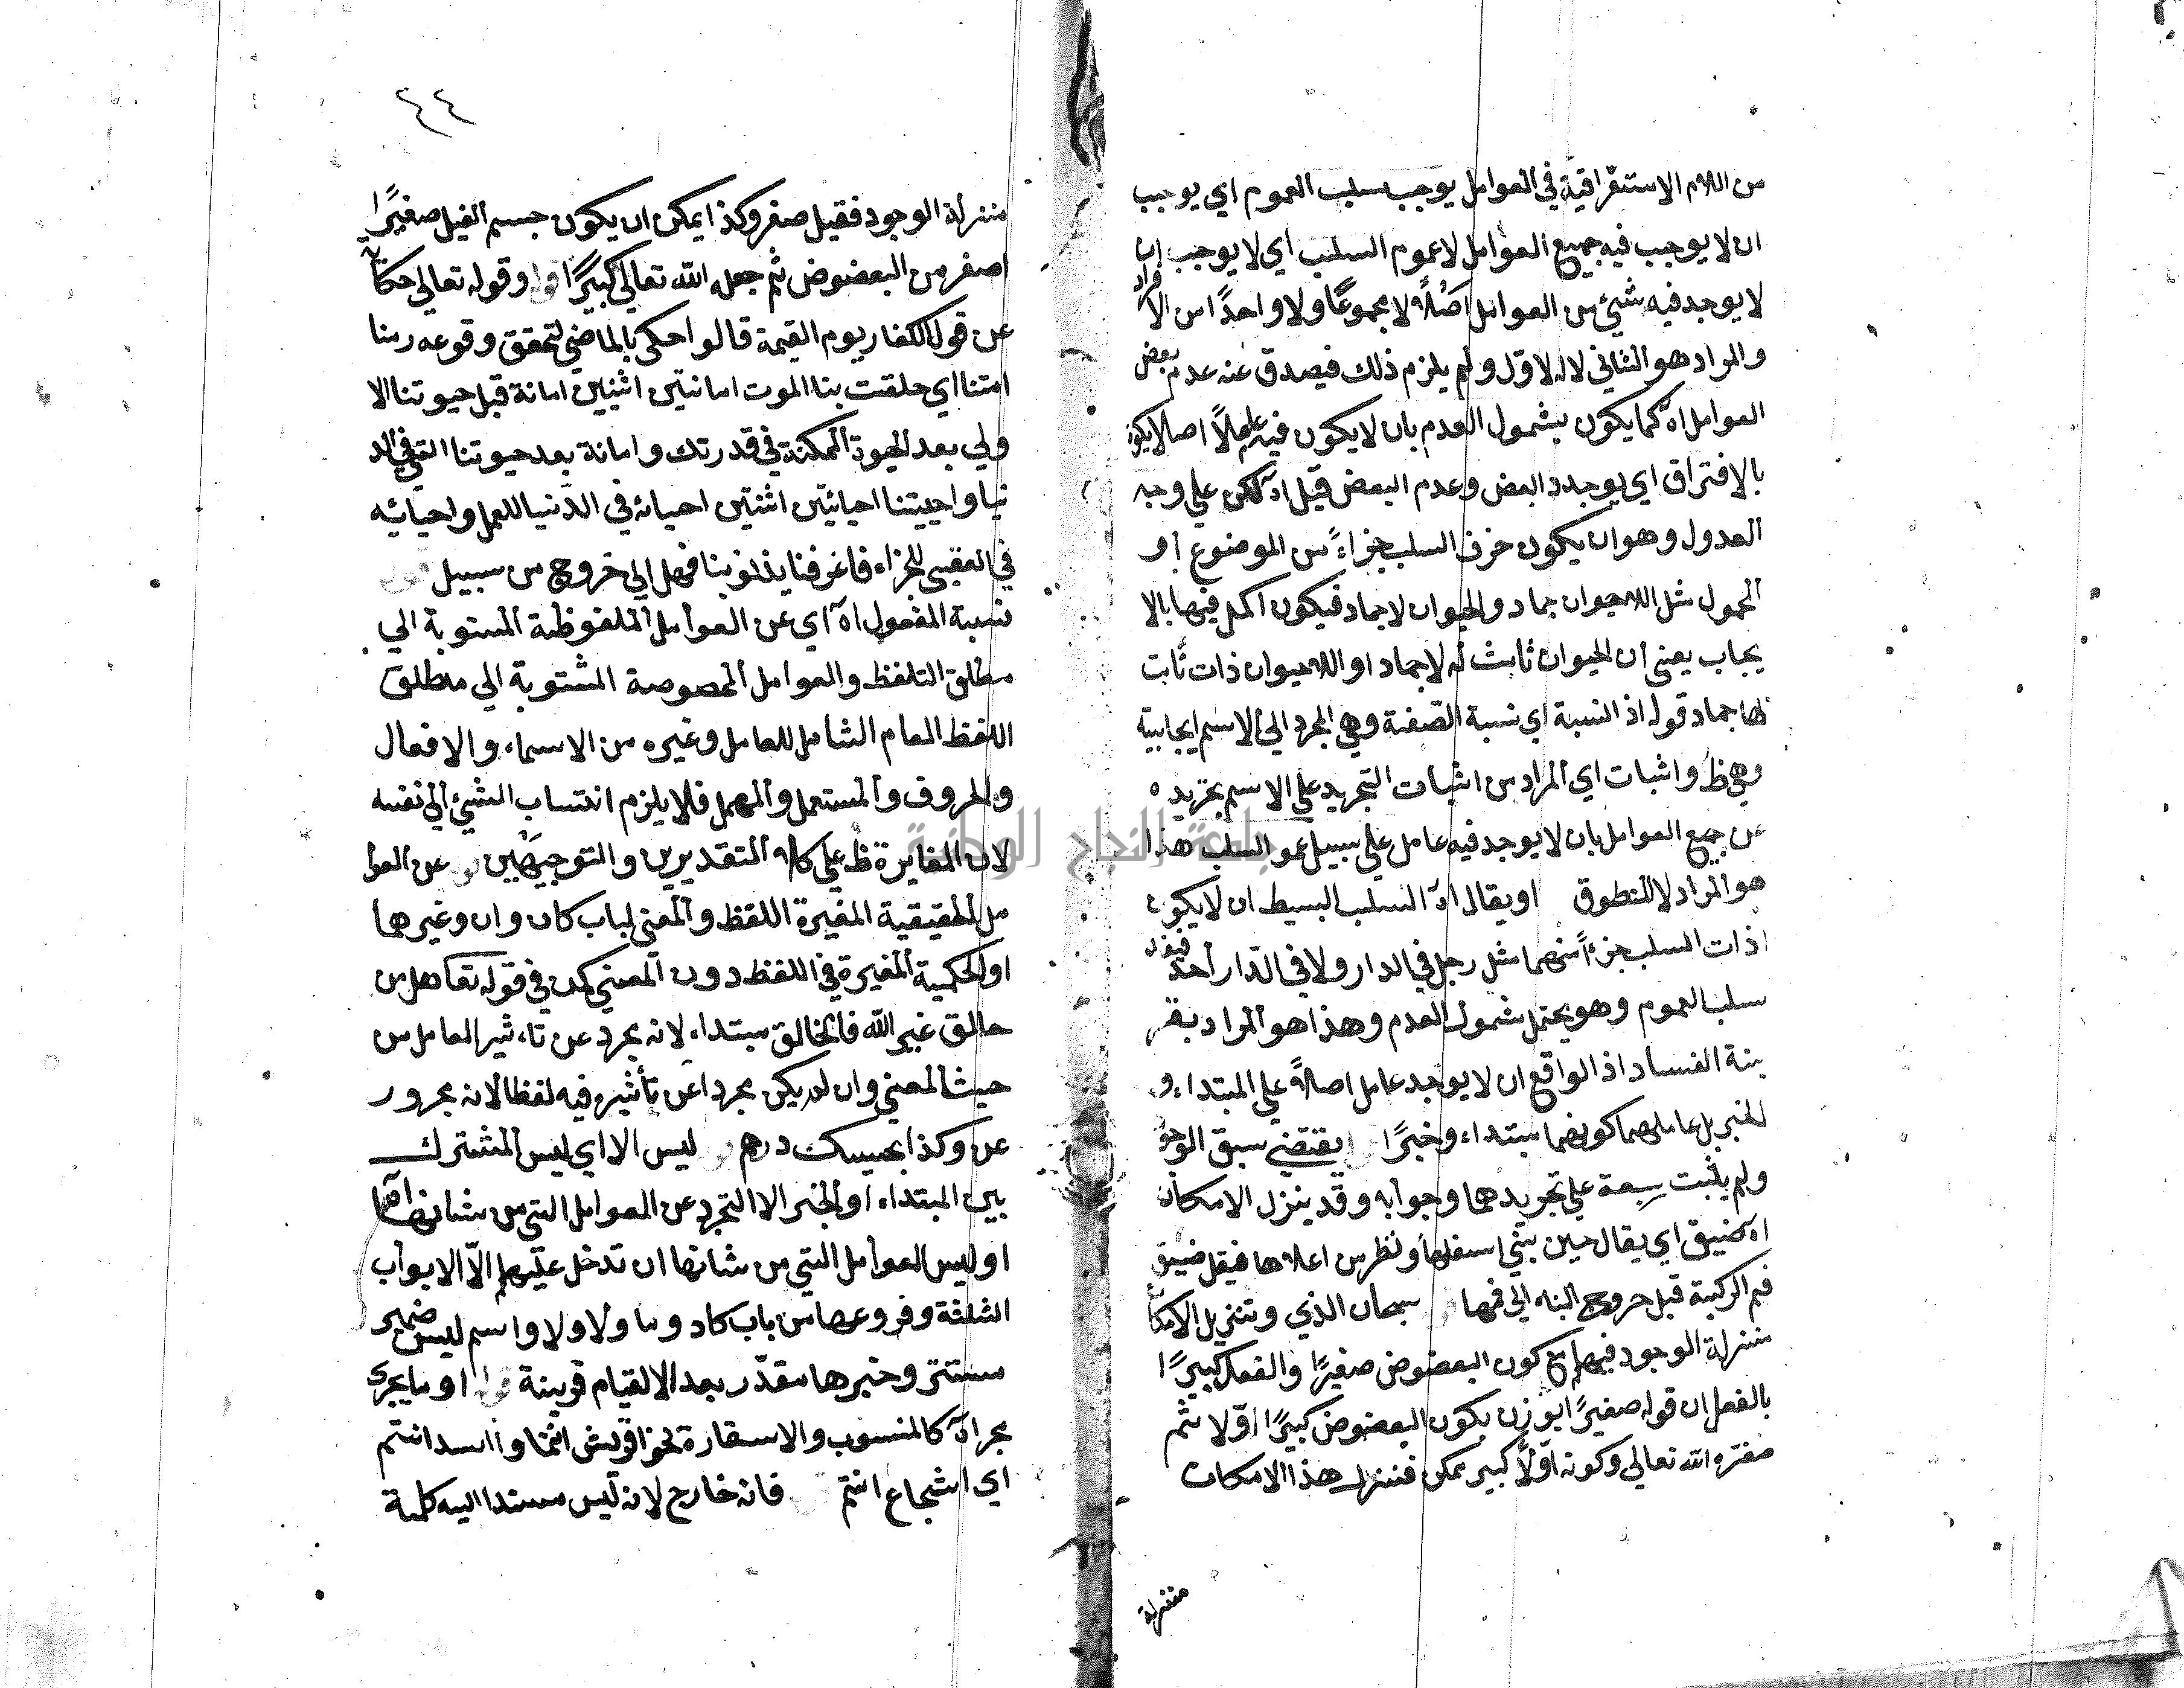 من اللام الاستغراقية في العوامل يوجب سلب العموم اي يوجب
ان لا يوجب فيه جميع العوامل لا عموم السلب اي لا يوجب ان
لا يوجد فيه شيئ من العوامل اصلاً لا مجموعًا ولا واحدًا من الافراد
والمراد هو الثاني لا الاوّل ولم يلزم ذلك فيصدق عنه عدم بعض
العوامل اه كما يكون بشمول العدم بان لا يكون فيه اصلا يكون
بالافتراق اي يوجد البعض وعدم البعض قيل اه لكن علي وجه
العدول وهو ان يكون حرف السلب جزاءً من الموضوع او
المحمول مثل اللاحيوان جماد والحيوان لا جماد فيكون الحكم فيها بالا
يجاب يعني ان الحيوان ثابت له لا جماد او اللاحيوان ذات ثابت
لها جماد قوله اذ النسبة اي نسبة الصّفة وهي المجرد الي الاسم ايجابية
وهي ظ واثبات اي المراد من اثبات التجريد علي الاسم تجريده
عن جميع العوامل بان لا يوجد فيه عامل علي سبيل عمو السلب هذا
هو المراد لا المنطوق او يقال اه السلب البسيط ان لا يكون
اذات السلب جزءاً منهما مثل رجل في الدار ولا في الدار احد فيفيد
سلب العموم وهو يحتمل شمول العدم وهذا هو المراد بقر
ينة الفساد اذ الواقع ان لا يوجد عامل اصلاً علي المبتداء و
الخبر بل عاملهما كونهما مبتداء وخبرًا يقتضي سبق الوجو
ولم يثبت سبعة علي تجريدهما وجوابه وقد ينزل الامكان
اه كضيق اي يقال حين بني اسفلها ونظر من اعلاها فيقل ضيق
فم الركبة قبل خروج البنه الي فمها سبحان الذي وتنزيل الامكان
منزلة الوجود فيهما مع كون البعضوض صغيرًا والفعل كبيرًا
بالفعل ان قوله صغيرًا ابوزن بكون البعضوض كبيرًا اوّلا ثم
صغرّه الله تعالي وكونه اوّلاً كبير ممكن فنزل هذا الامكان
منزلة
٤٤
منزلة الوجود فقيل صغر وكذا يمكن ان يكون جسم الفيل صغيرًا
اصغر من البعضوض ثم جعله الله تعالي كبيرًا قوله وقوله تعالي حكاية
عن قول الكفار يوم القيمة قالوا حكي بالماضي لتحقق وقوعه ربنا
امتنا اي خلقت بنا الموت اماتتين اثنين اماتة قبل حيوتنا الا
ولي بعد الحيوة الممكنة في قدرتك واماتة بعد حيوتنا التي في الد
نيا واحييتنا احيائتين اثنتين احيائه في الدّنيا للعمل واحيائيه
في العقبي للجزاء فاعترفنا بذنوبنا فهل الي خروج من سبيل قوله
نسبة المفعول اه اي عن العوامل الملفوظية المنسوبة الي
مطلق التلفظ والعوامل المخصوصة المنسوبة الي مطلق
اللفظ العام الشامل للعامل وغيره من الاسماء والافعال
والحروف والمستعمل والمهمل فلا يلزم انتساب الشيئ الي نفسه
لان المغايرة ظ علي كلا التقديرين والتوجيهين عن العوا
مل الحقيقية المغيرة اللفظ والمعني لباب كان وان وغيرها
او الحكمية المغيرة في اللفظ دون المعني كمن في قوله تعا هل من
خالق غير الله فالخالق مبتداء لانه مجرد عن تاءثير العامل من
حيث المعني وان لم يكن مجردا عن تأثيره فيه لفظا لانه مجرور
عن وكذا بحسبك درهم ليس الا اي ليس المشترك
بين المبتداء او الخبر الا التجرد عن العوامل التي من شانها اه
او ليس العوامل التي من شانها ان تدخل عليهما الّا الابواب
الثلثة وفروعها من باب كاد وما ولا ولا واسم ليس ضمير
مستتر وخبرها مقدّر بعد الا لقيام قرينة قوله او ما يجري
مجراه كالمنسوب والاستعارة نحو اقريش انتما واسد انتم
اي اشجاع انتم فانه خارج لانه ليس مسندا اليه كلمة
جامعة النجاح الوطنية